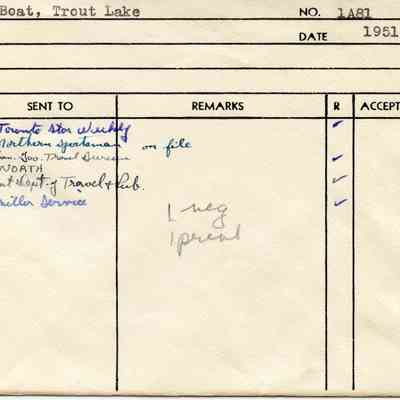 Boat, Trout Lake NO. 1A81
DATE 1951
SENT TO REMARKS R ACCEPT
Toronto Star Weekly
Northern Sportsman on file
Gov. Travel Bureau
NORTH
Dept. of Travel & Pub.
Miller Service
1 neg
1 print